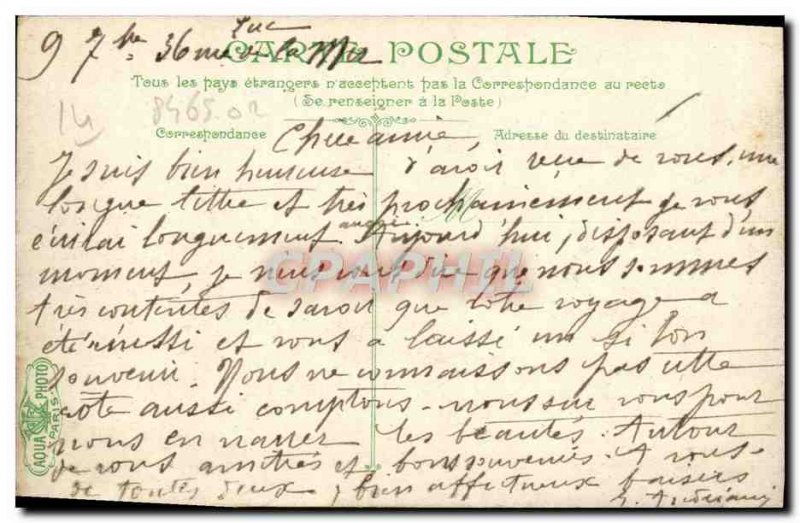 9 7bre 36 rue de la
CARTE POSTALE
Tous les pays étrangers n'acceptent pas la Correspondance au recto
(Se renseigner à la Poste)
14 8465.02
Correspondance Chère amie, Adresse du destinataire
Je suis bien heureuse d'avoir reçue de vous, une
longue lettre et très prochainement je vous
écrirai longuement aussi. Aujourd'hui, disposant d'un
moment, je veux vous dire que nous sommes
très contentes de savoir que votre voyage a
été réussi et vous a laissé un si bon
souvenir. Nous ne connaissons pas cette
côte aussi comptons-nous sur vous pour
nous en narrer les beautés. Autour
de vous amitiés et bons souvenirs. A vous
de toutes deux, bien affectueux baisers
CPAPHIL
AQUA PHOTO
PARIS